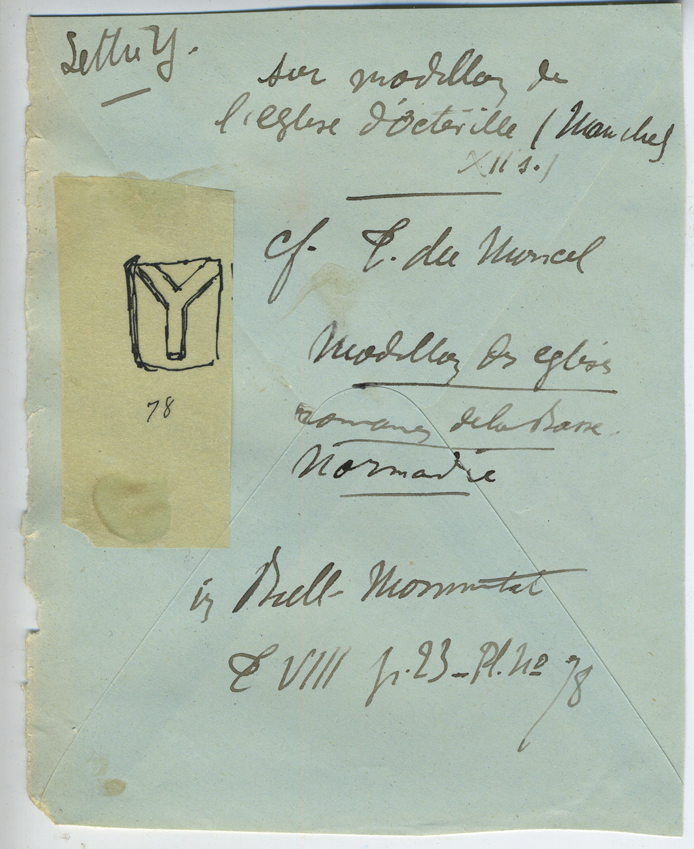 Lettre Y.
sur modillon de
l'eglise d'Octeville (Manche)
XII s.)
Y
78
cf. T. du Moncel
Modillons des eglises
romanes de la Basse
Normandie
in Bull. Monumental
T VIII p. 23 - Pl. No 78